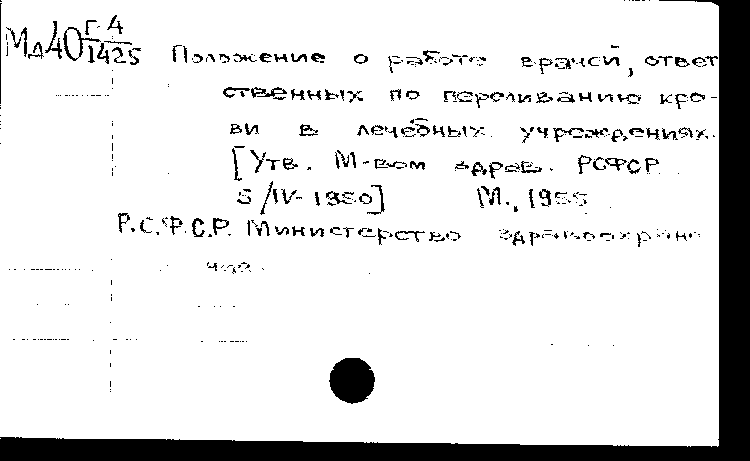 Мд40 Г-4/1425
Положение о работе врачей, ответ
ственных по переливанию кро-
ви в лечебных учреждениях.
[Утв. М-вом здрав. РСФСР
5/IV-1950] М., 1955
Р.С.Ф.С.Р. Министерство здравоохране
ния.